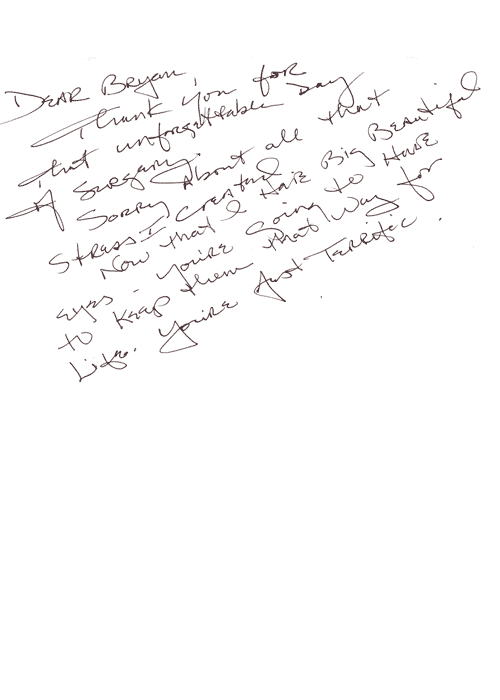 Dear Bryan,
Thank you for
that unforgettable Day
of Surgary.
Sorry About all that
Stress I created
Now that I HAVE Big Beautiful
eyes - you're going to HAVE
to keep them that way for
Life. You're Just Terrific.